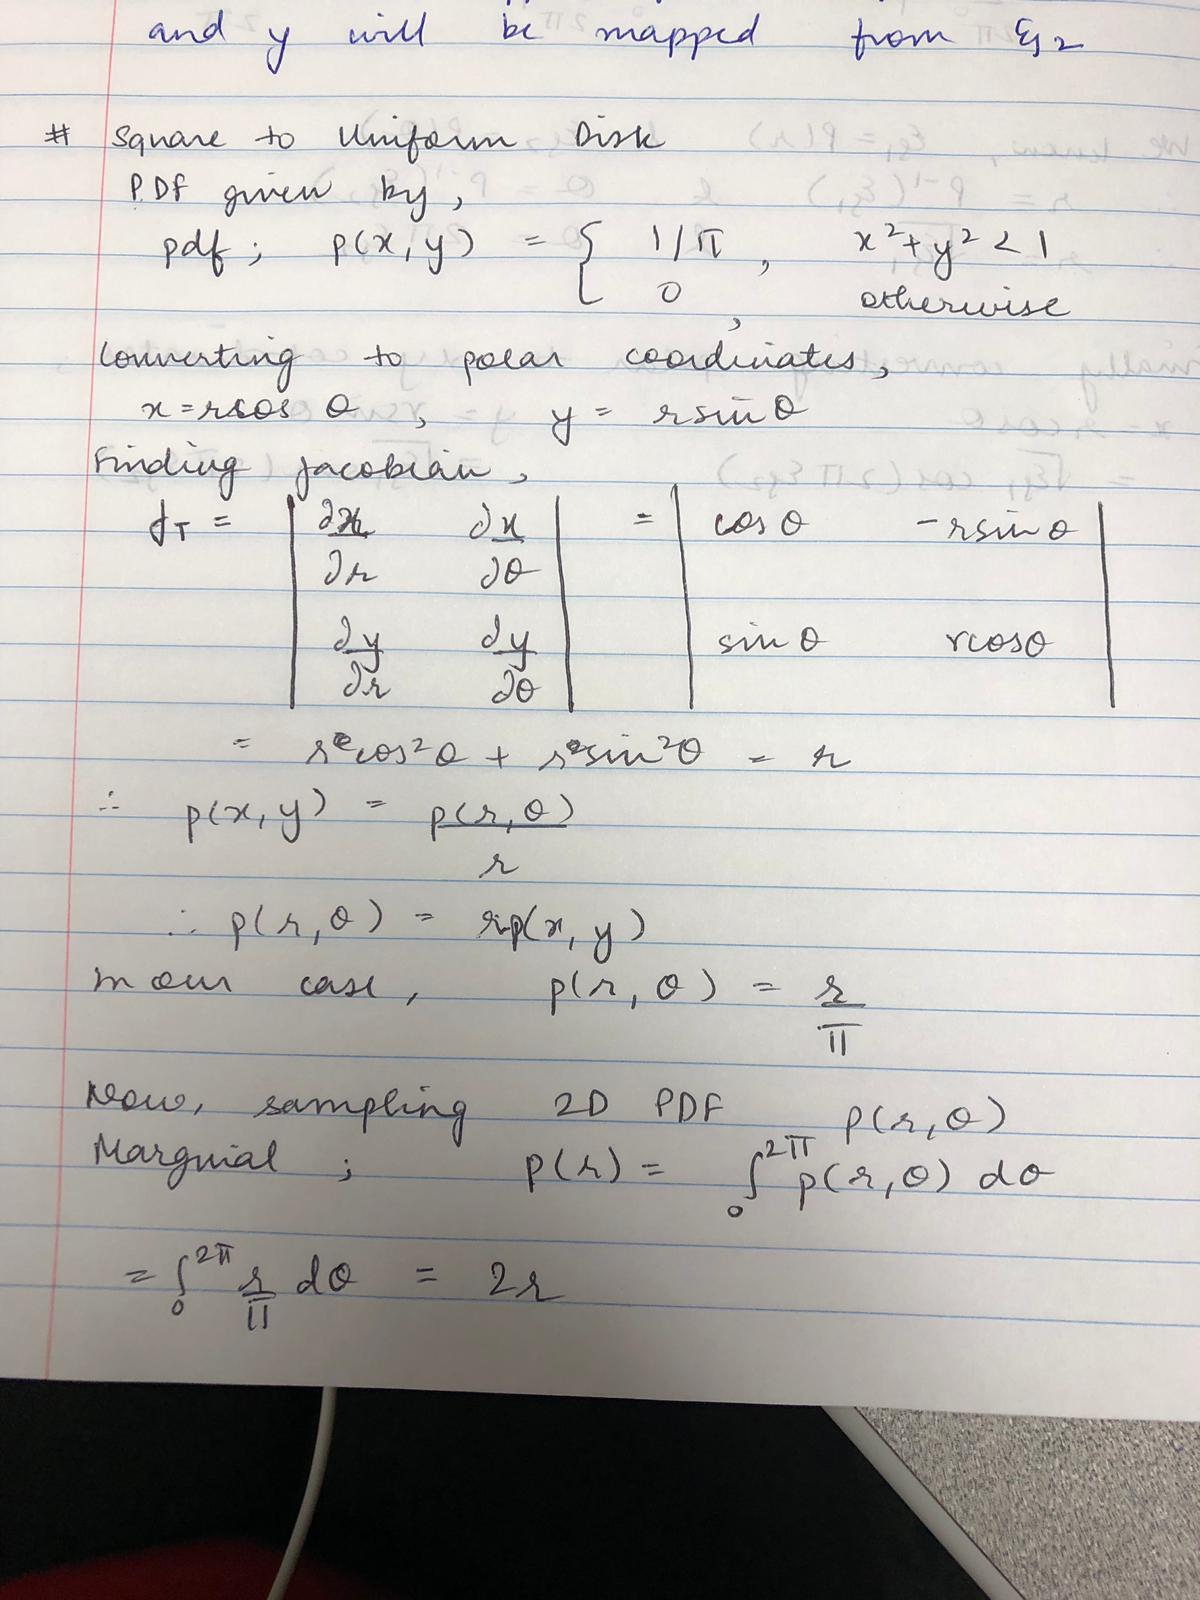 and y will be mapped from ξ2
# Square to Uniform Disk
PDF given by,
pdf; p(x, y) = { 1/π , x² + y² < 1
0 , otherwise
Converting to polar coordinates,
x = rcos θ , y = r sin θ
Finding Jacobian,
J_T = | ∂x/∂r ∂x/∂θ | = | cos θ - r sin θ |
| ∂y/∂r ∂y/∂θ | | sin θ r cos θ |
= r cos² θ + r sin² θ = r
∴ p(x, y) = p(r, θ) / r
∴ p(r, θ) = r p(x, y)
In our case, p(r, θ) = r / π
Now, sampling 2D PDF p(r, θ)
Marginal ; p(r) = ∫₀^2π p(r, θ) dθ
= ∫₀^2π r/π dθ = 2r